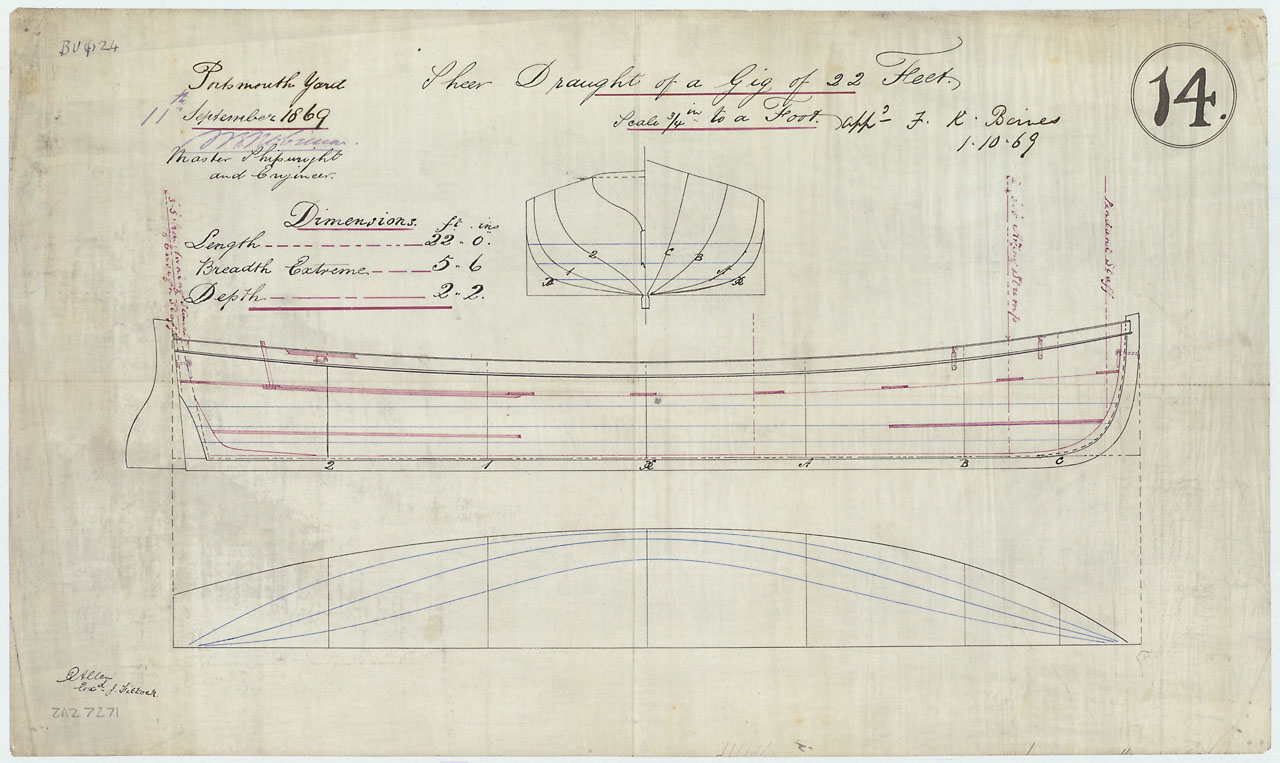 BU424
Portsmouth Yard
11th September 1869
Master Shipwright
and Engineer.
Sheer Draught of a Gig of 22 Feet,
Scale 3/4 in to a Foot.
Appd F. K. Barnes
1.10.69
14.
Dimensions. ft. ins
Length 22 " 0.
Breadth Extreme 5 " 6
Depth 2 " 2.
2 1 C B A
Stump
Staff
2 1 A B C
Exd J.
ZAZ7271